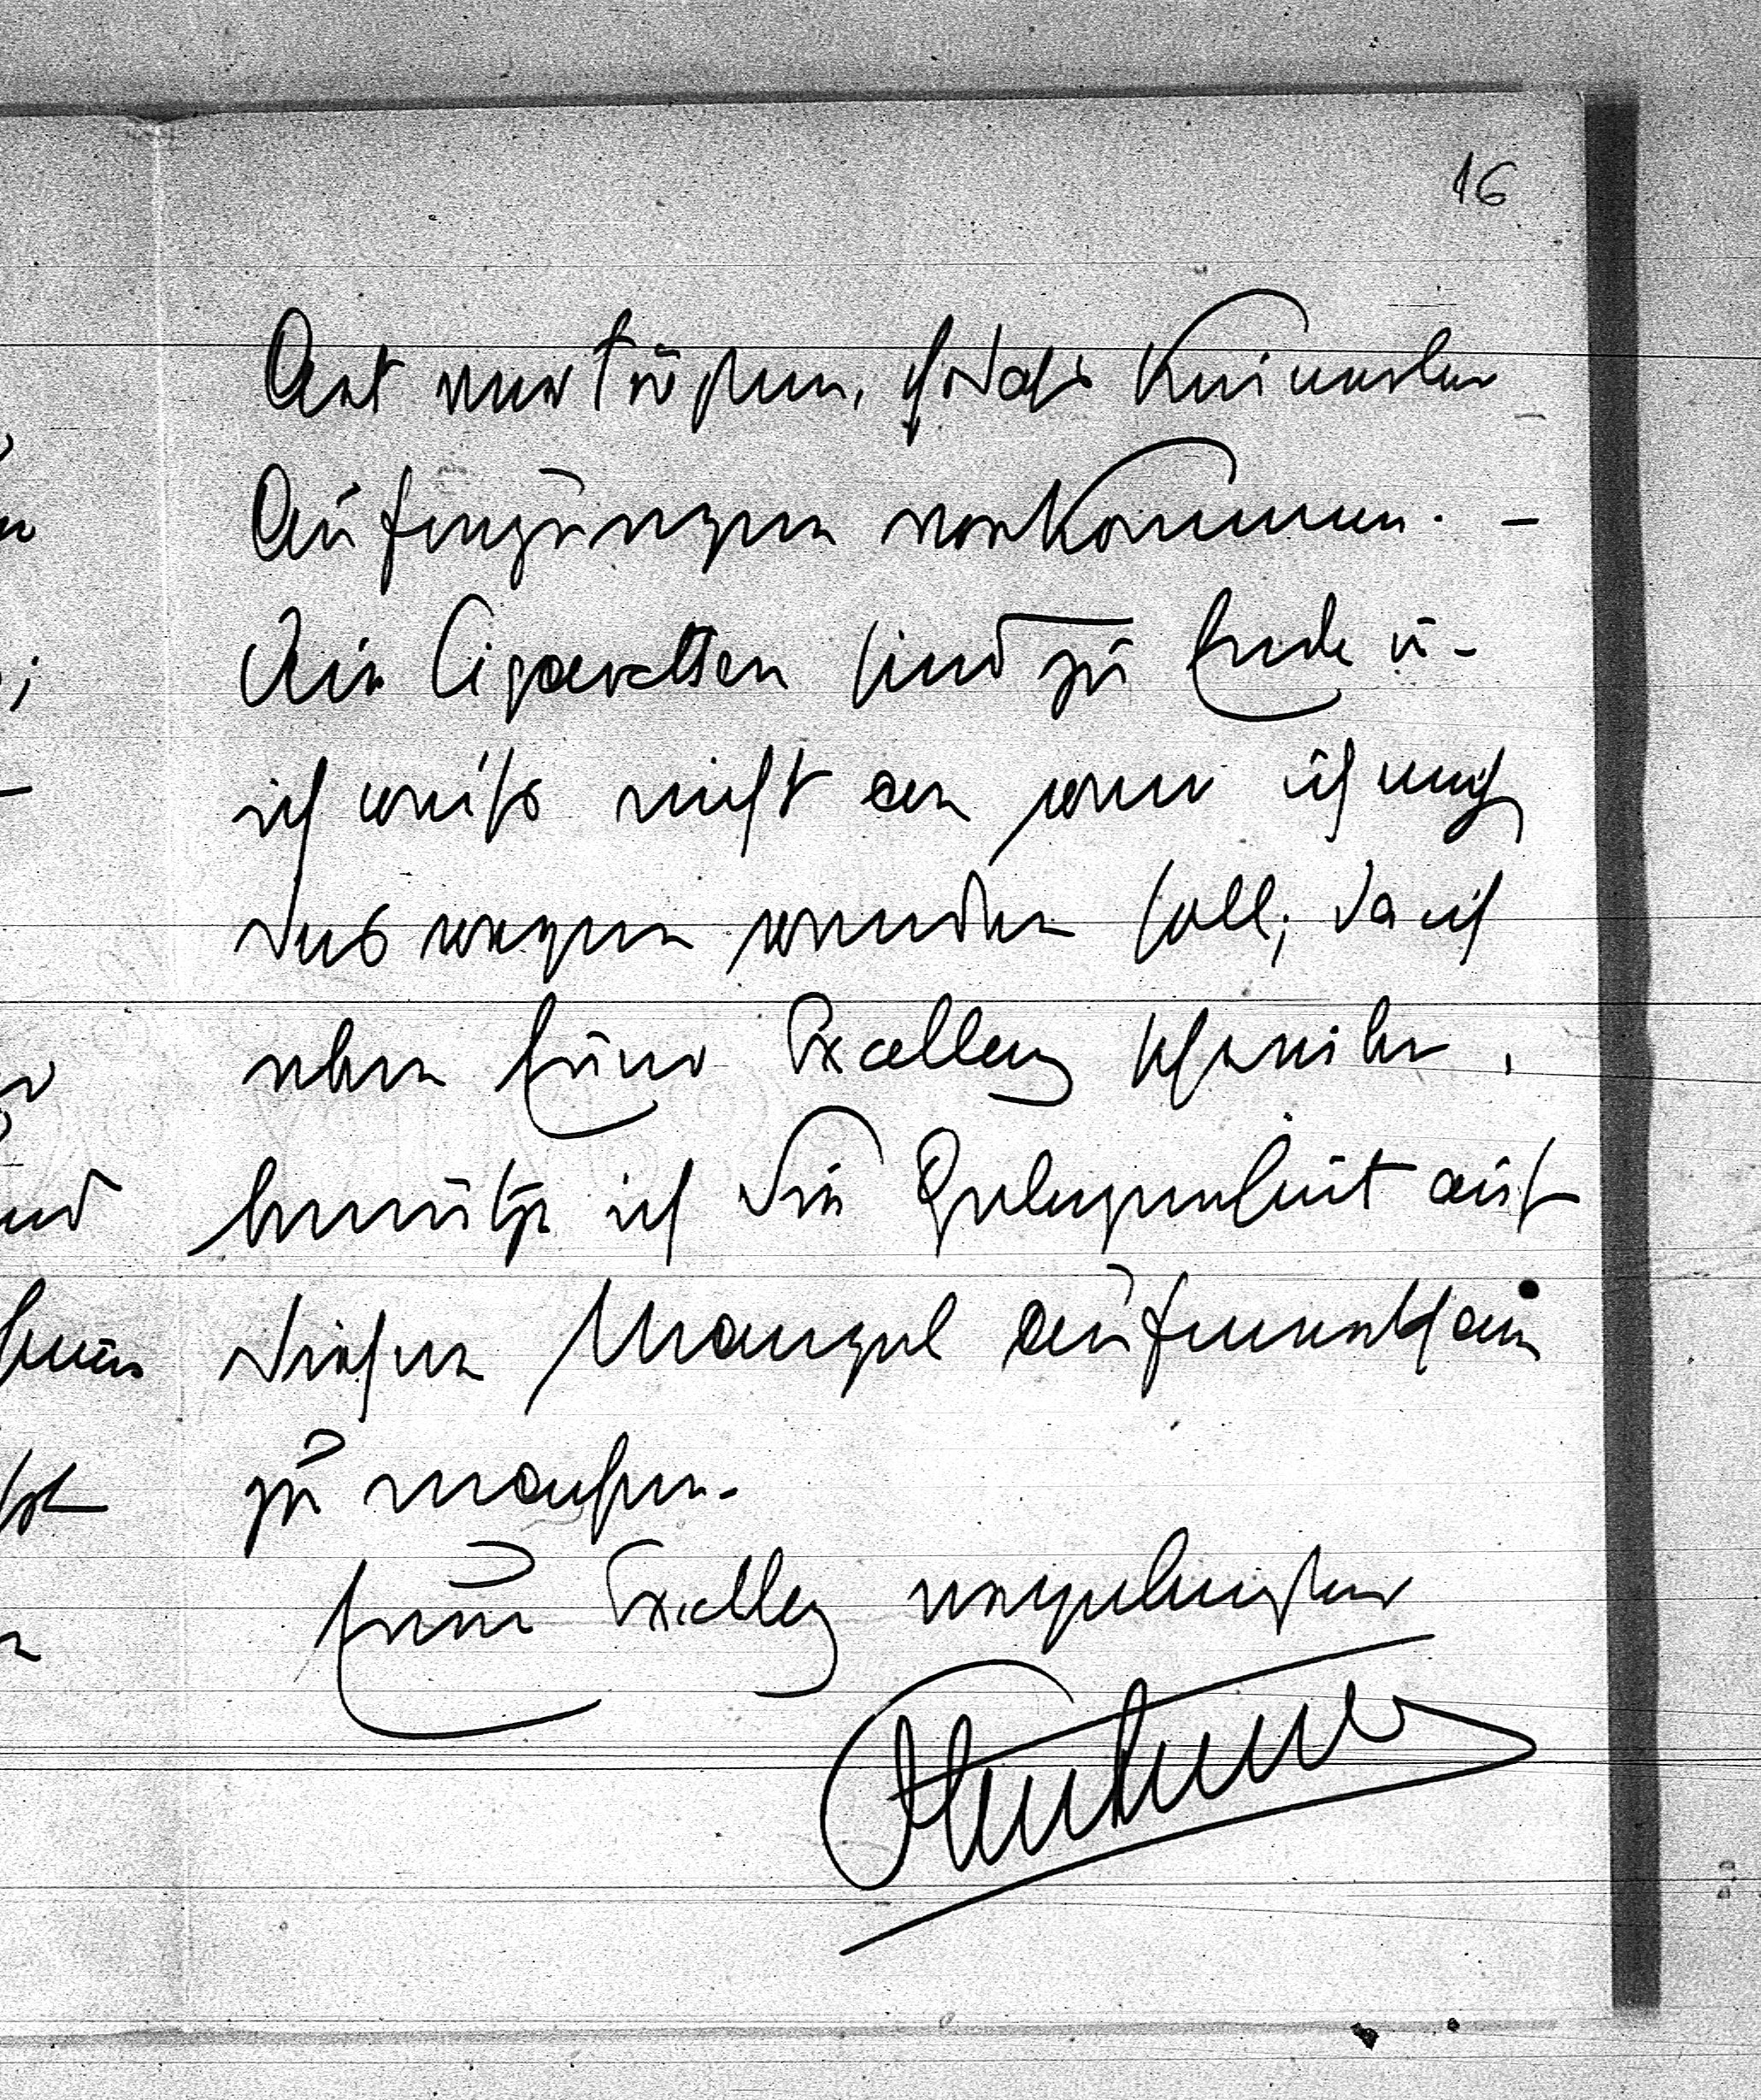 16
Art vertrösten, sodaß keinerlei
Aufregungen vorkommen. –
Die Cigaretten sind zu Ende u-
ich weiß nicht an wen ich mich
deswegen wenden soll; da ich
eben Euer Excellenz schreibe,
benütze ich die Gelegenheit auf
diesen Mangel aufmerksam
zu machen.
Euer Excellenz ergebenster